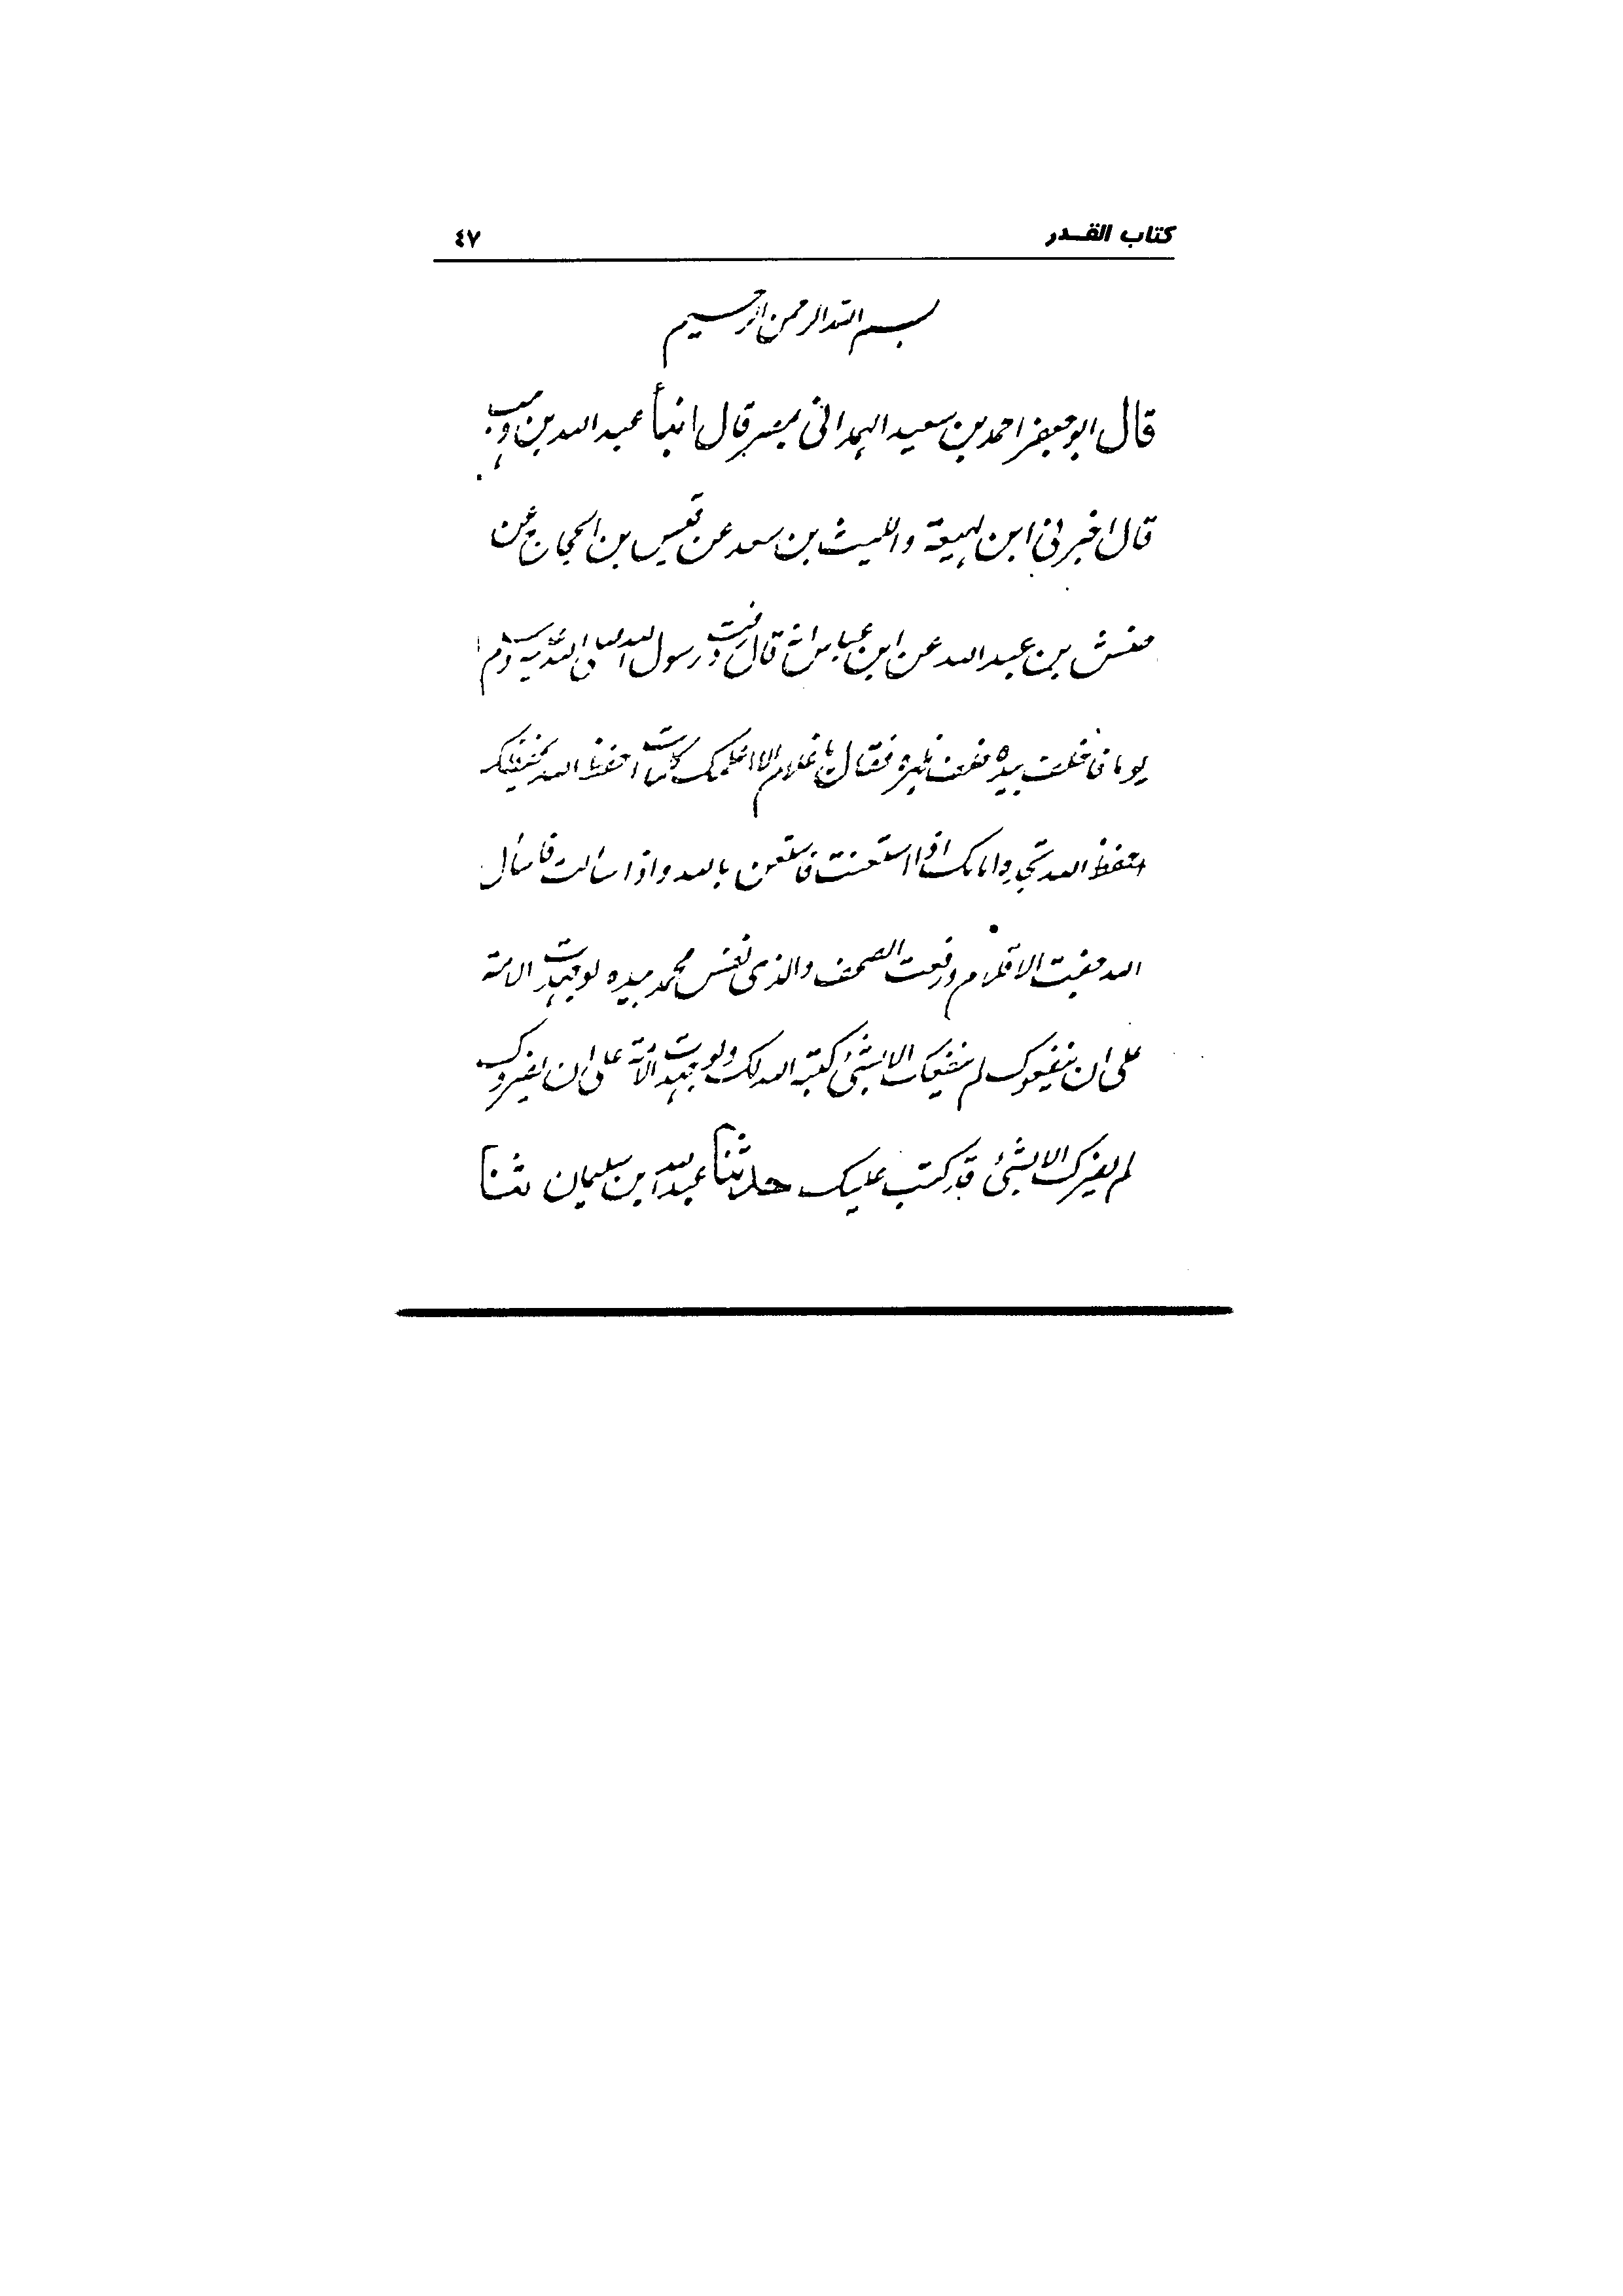 كتاب القدر ٤٧
بسم الله الرحمن الرحيم
قال ابو جعفر احمد بن سعيد الهمداني بمصر قال انبأ عبد الله بن وهب
قال اخبرني ابن لهيعة والليث بن سعد عن قيس بن الحجاج عن
حنش بن عبد الله عن ابن عباس انه قال ردفت رسول الله صلى الله عليه وسلم
يوما فاخلف بيده فقال يا غلام الا اعلمك كلمات احفظ الله يحفظك
احفظ الله تجده امامك اذا استعنت فاستعن بالله واذا سألت فاسأل
الله جفت الاقلام ورفعت الصحف والذي نفس محمد بيده لو جهدت الامة
على ان ينفعوك لم ينفعك الا بشئ كتبه الله لك ولو جهدت الامة على ان يضروك
لم يضرك الا بشئ قد كتب عليك حدثنا عبد الله بن سليمان ثنا